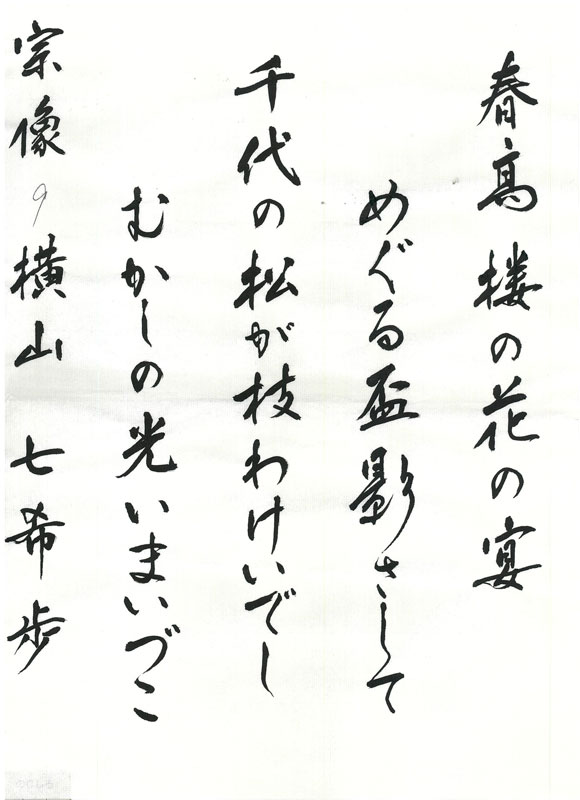 春高楼の花の宴
めぐる盃影さして
千代の松が枝わけいでし
むかしの光いまいづこ
宗像9横山七希歩